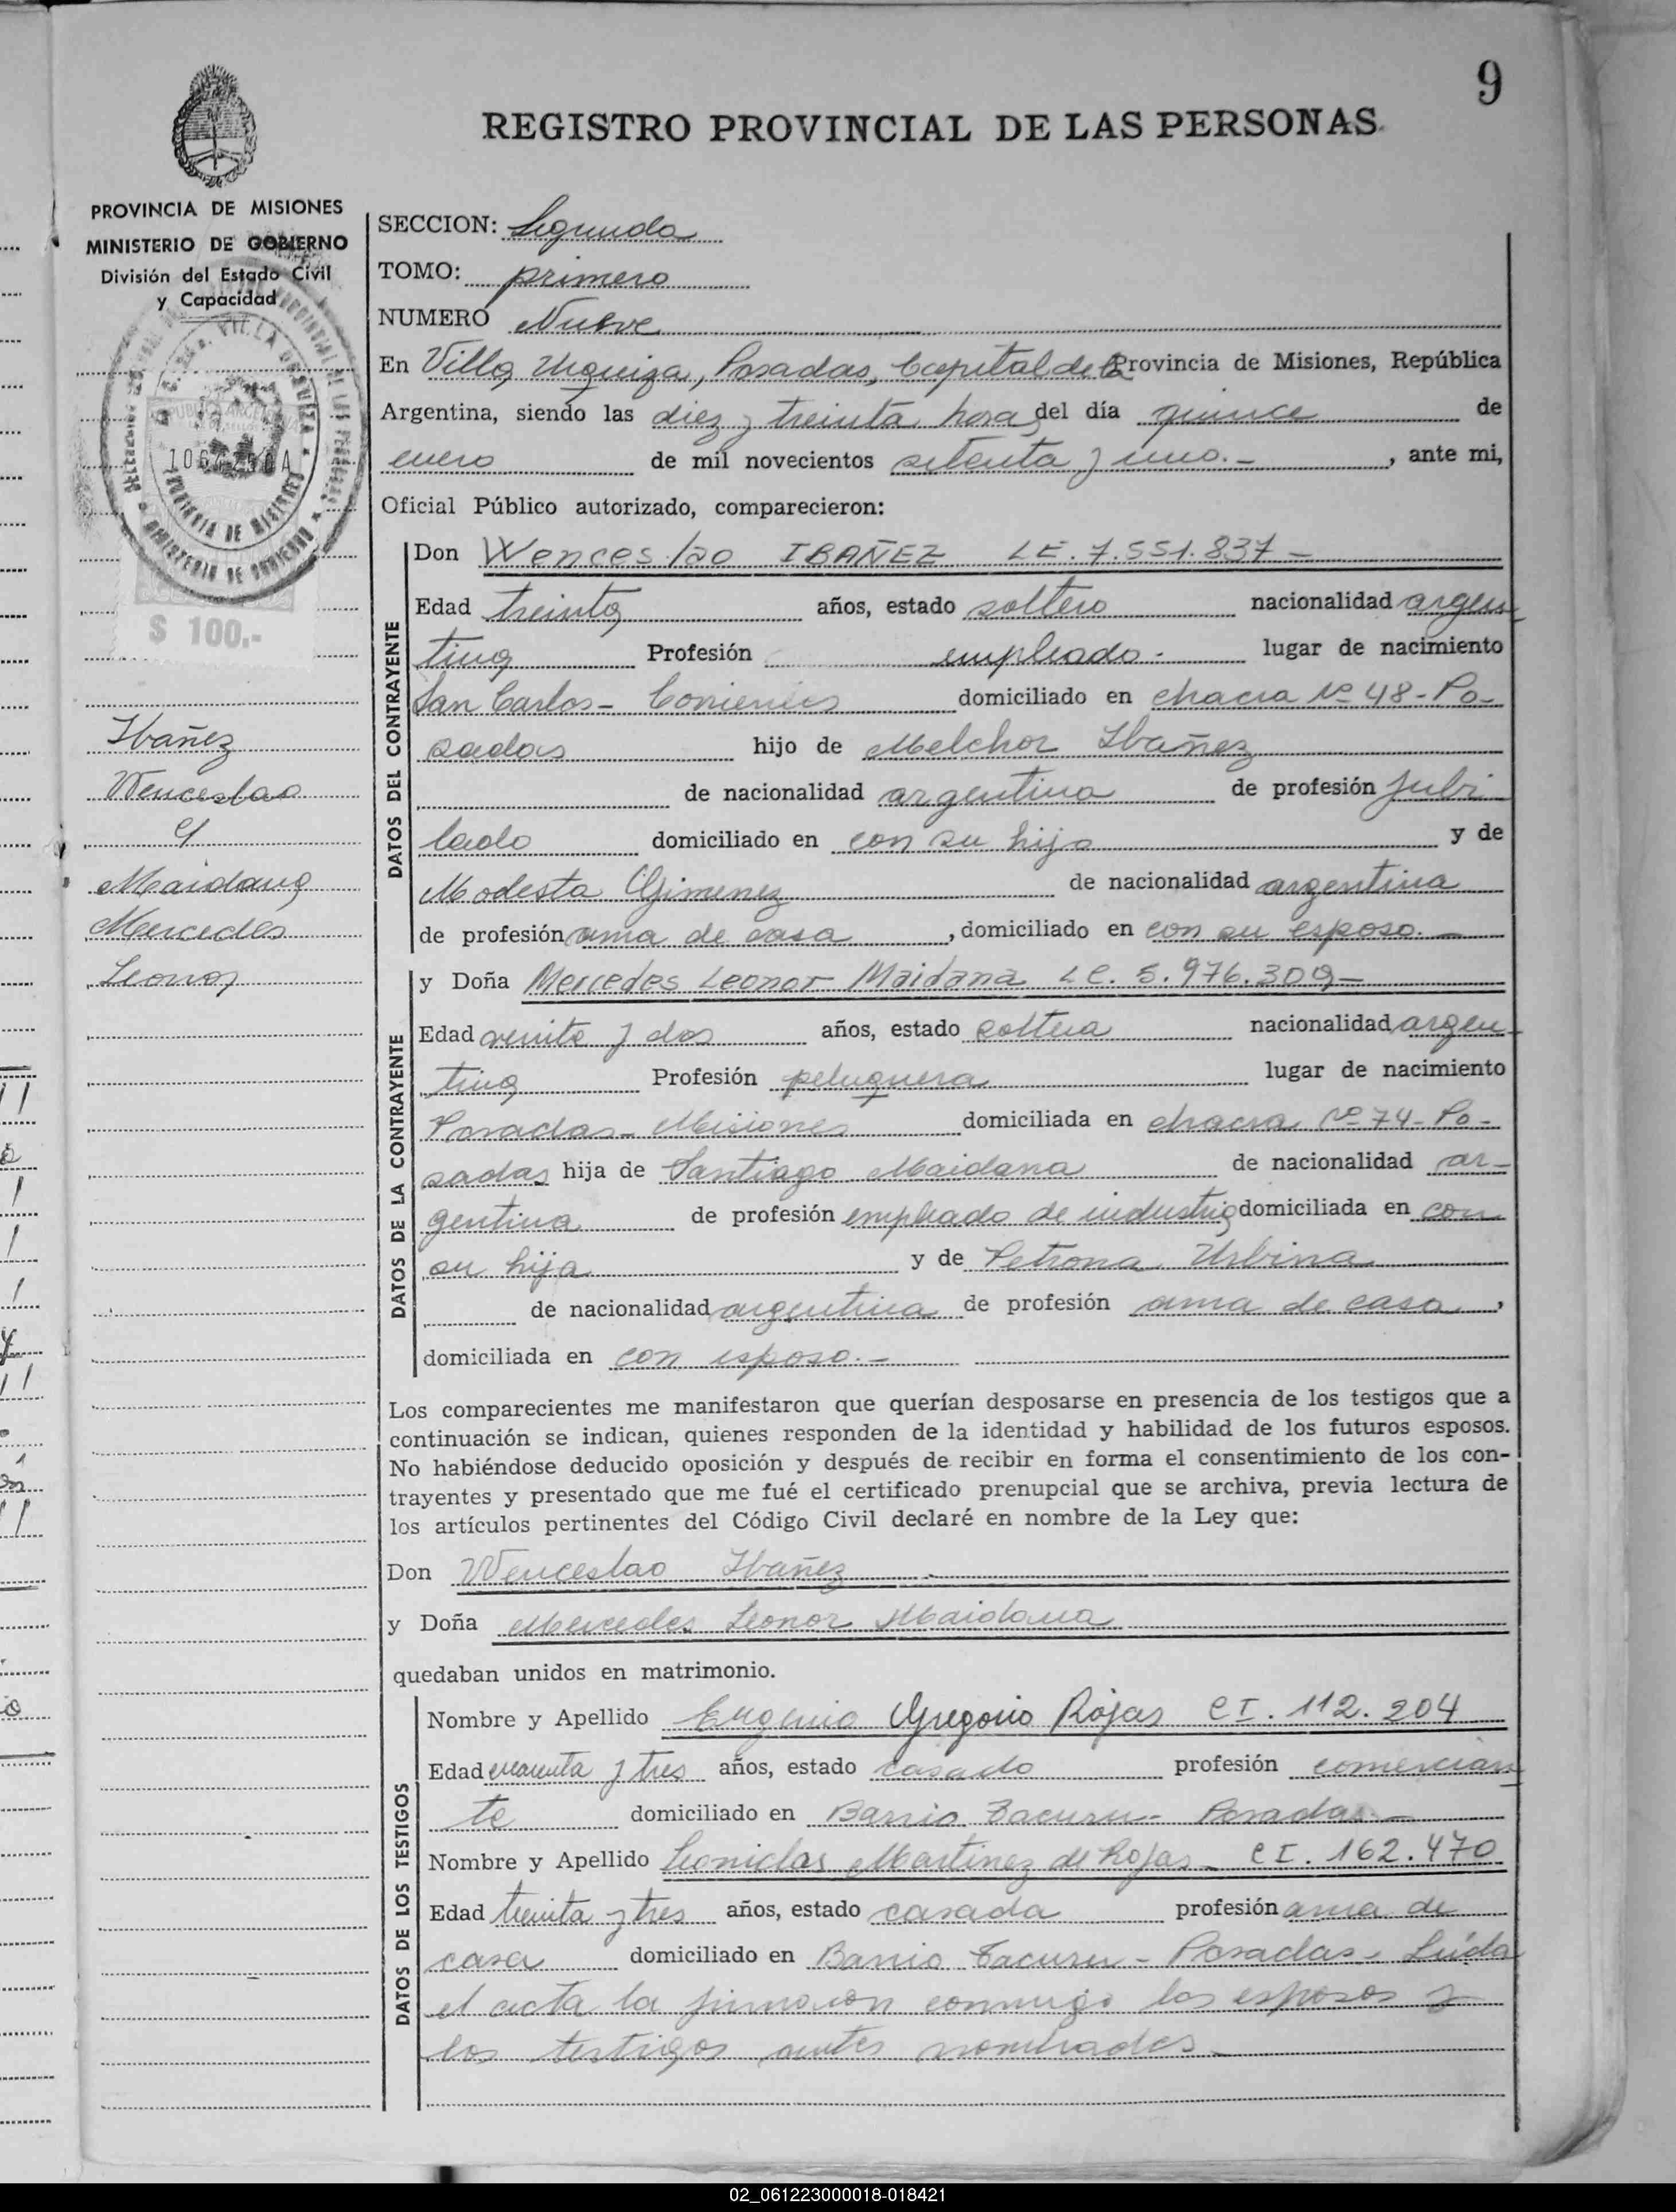 9
REGISTRO PROVINCIAL DE LAS PERSONAS
PROVINCIA DE MISIONES
MINISTERIO DE GOBIERNO
División del Estado Civil
y Capacidad
$ 100.-
Ibañez
Wenceslao
c/
Maidana
Mercedes
Leonor
SECCION: Segunda
TOMO: primero
NUMERO Nueve
En Villa Urquiza, Posadas, Capital de la Provincia de Misiones, República
Argentina, siendo las diez y treinta horas del día quince de
enero de mil novecientos setenta y uno.- , ante mi,
Oficial Público autorizado, comparecieron:
DATOS DEL CONTRAYENTE
Don Wenceslao IBAÑEZ LE. 7.551.837-
Edad treinta años, estado soltero nacionalidad argen
tina Profesión empleado.- lugar de nacimiento
San Carlos- Corrientes domiciliado en chacra Nº 48-Po-
sadas hijo de Melchor Ibañez
de nacionalidad argentina de profesión jubi
lado domiciliado en con su hijo y de
Modesta Gimenez de nacionalidad argentina
de profesión ama de casa , domiciliado en con su esposo.-
DATOS DE LA CONTRAYENTE
y Doña Mercedes Leonor Maidana LC. 5.976.309-
Edad veinte y dos años, estado soltera nacionalidad argen-
tina Profesión peluquera lugar de nacimiento
Posadas- Misiones domiciliada en chacra Nº 74- Po-
sadas hija de Santiago Maidana de nacionalidad ar-
gentina de profesión empleado de industria domiciliada en con
su hija y de Petrona Urbina
de nacionalidad argentina de profesión ama de casa ,
domiciliada en con esposo.-
Los comparecientes me manifestaron que querían desposarse en presencia de los testigos que a
continuación se indican, quienes responden de la identidad y habilidad de los futuros esposos.
No habiéndose deducido oposición y después de recibir en forma el consentimiento de los con-
trayentes y presentado que me fué el certificado prenupcial que se archiva, previa lectura de
los artículos pertinentes del Código Civil declaré en nombre de la Ley que:
Don Wenceslao Ibañez
y Doña Mercedes Leonor Maidana
quedaban unidos en matrimonio.
DATOS DE LOS TESTIGOS
Nombre y Apellido Eugenio Gregorio Rojas CI. 112.204
Edad cuarenta y tres años, estado casado profesión comercian
te domiciliado en Barrio Tacuru- Posadas.-
Nombre y Apellido Leonidas Martinez de Rojas- CI. 162.470
Edad treinta y tres años, estado casada profesión ama de
casa domiciliado en Barrio Tacuru- Posadas- Leída
el acta la firmaron conmigo los esposos y
los testigos antes nombrados-
02_061223000018-018421